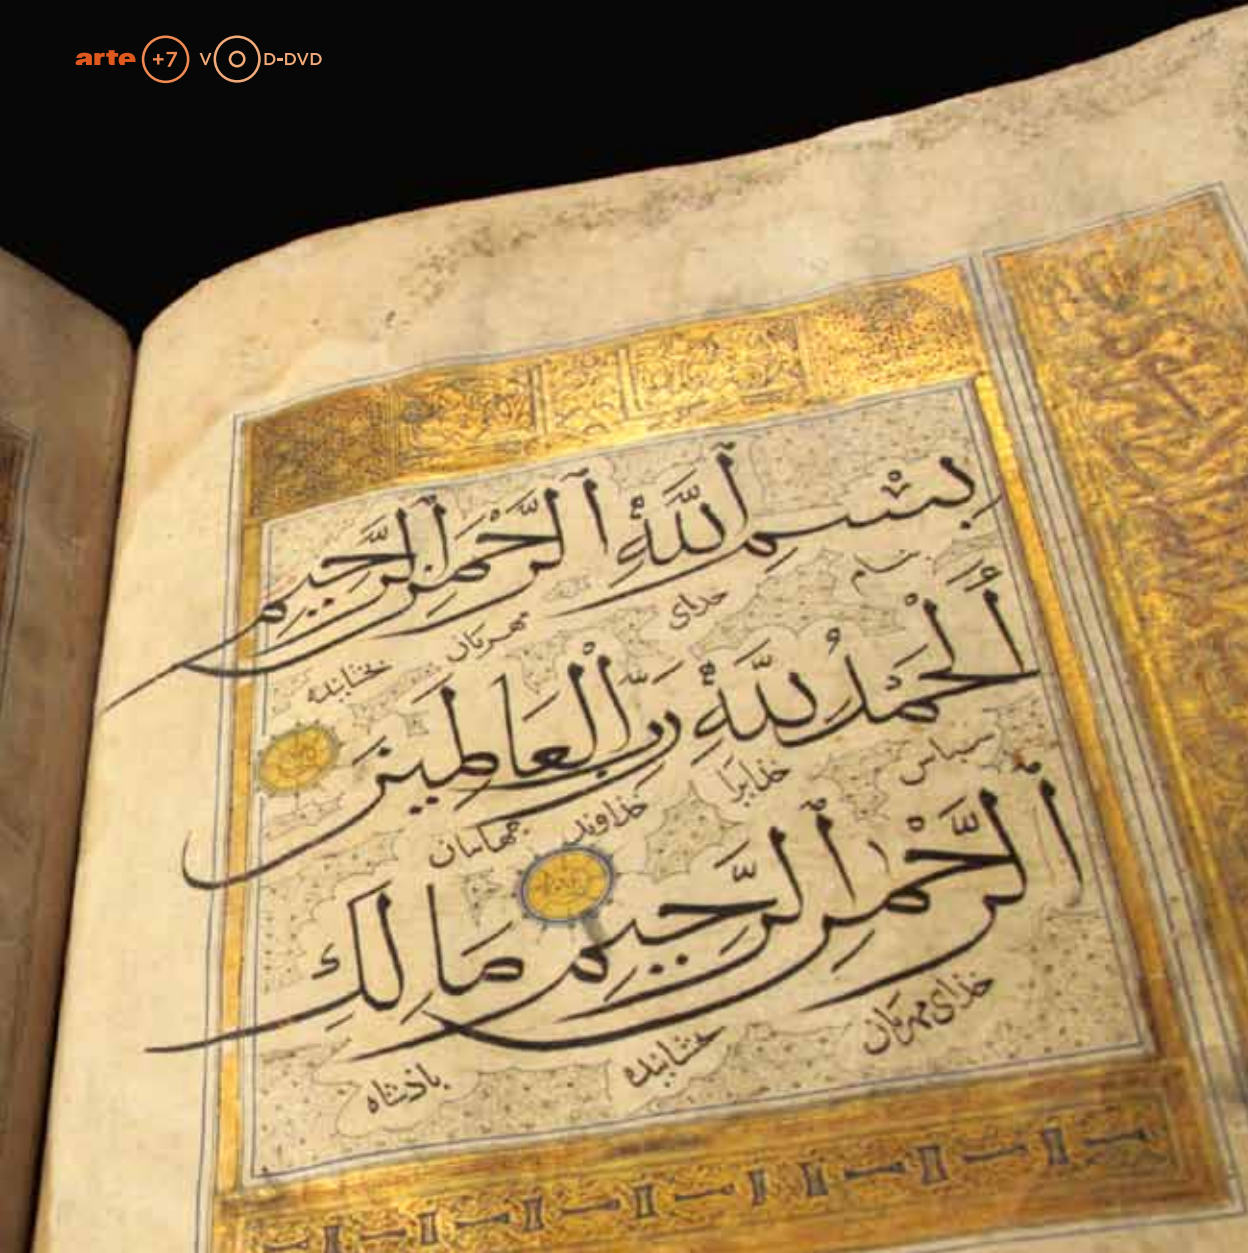 arte +7 VOD-DVD
بِسْمِ اللَّهِ الرَّحْمَنِ الرَّحِيمِ
بنام خدای مهربان بخشاینده
اَلْحَمْدُ لِلَّهِ رَبِّ الْعَالَمِينَ
سپاس خدایرا خداوند جهانیان
اَلرَّحْمَنِ الرَّحِيمِ مَالِكِ
خدای مهربان بخشاینده باذشاه